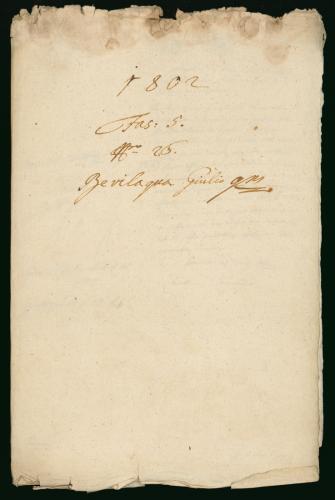 1802
Fas: 5.
N.ro 26.
Bevilaqua Giulio